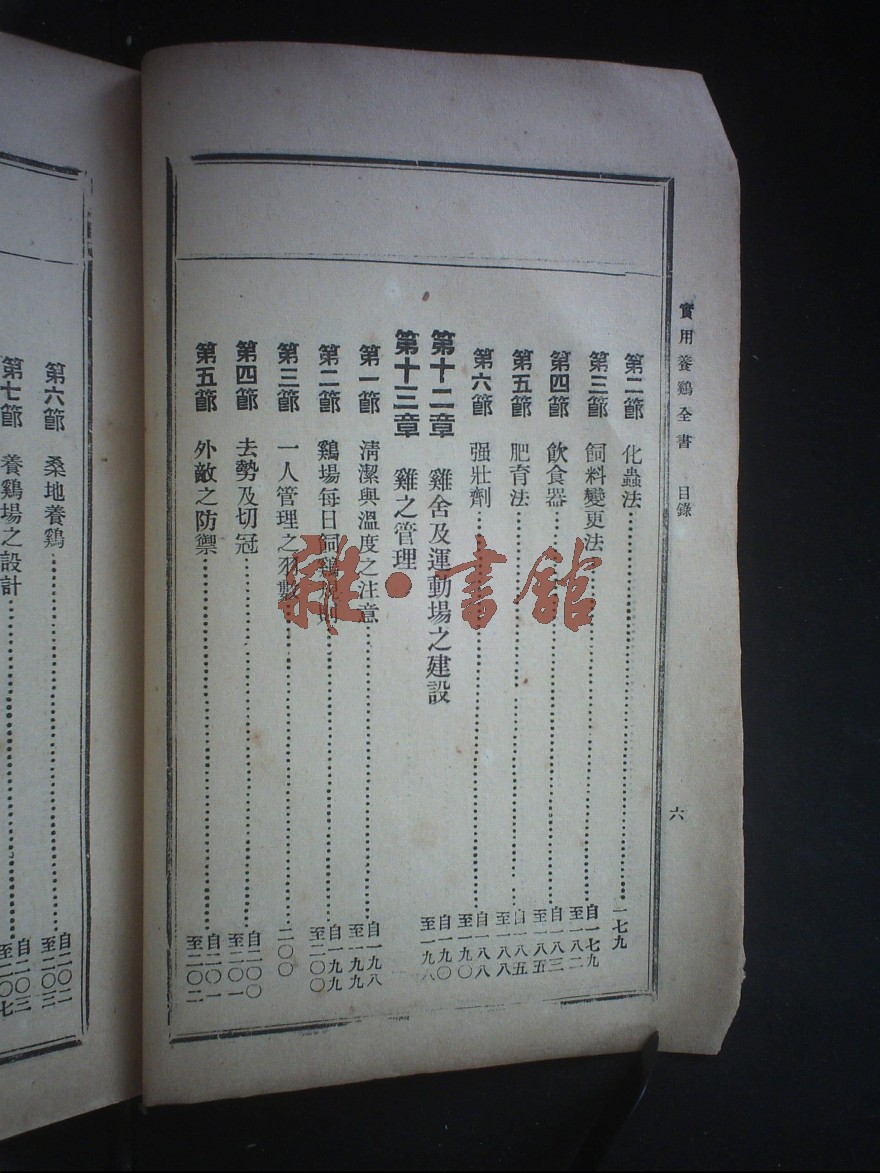 實用養鷄全書 目錄
六
第二節 化蟲法 一七九
第三節 飼料變更法 自一七九至一八二
第四節 飲食器 自一八三至一八五
第五節 肥育法 自一八五至一八八
第六節 强壯劑 自一八八至一九〇
第十二章 雞舍及運動場之建設 自一九〇至一九八
第十三章 雞之管理
第一節 淸潔與溫度之注意 自一九八至一九九
第二節 鷄場每日飼鷄規則 自一九九至二〇〇
第三節 一人管理之羽數 二〇〇
第四節 去勢及切冠 自二〇〇至二〇一
第五節 外敵之防禦 自二〇一至二〇二
第六節 桑地養鷄 自二〇二至二〇三
第七節 養鷄場之設計 自二〇三至二〇七
雜·書館